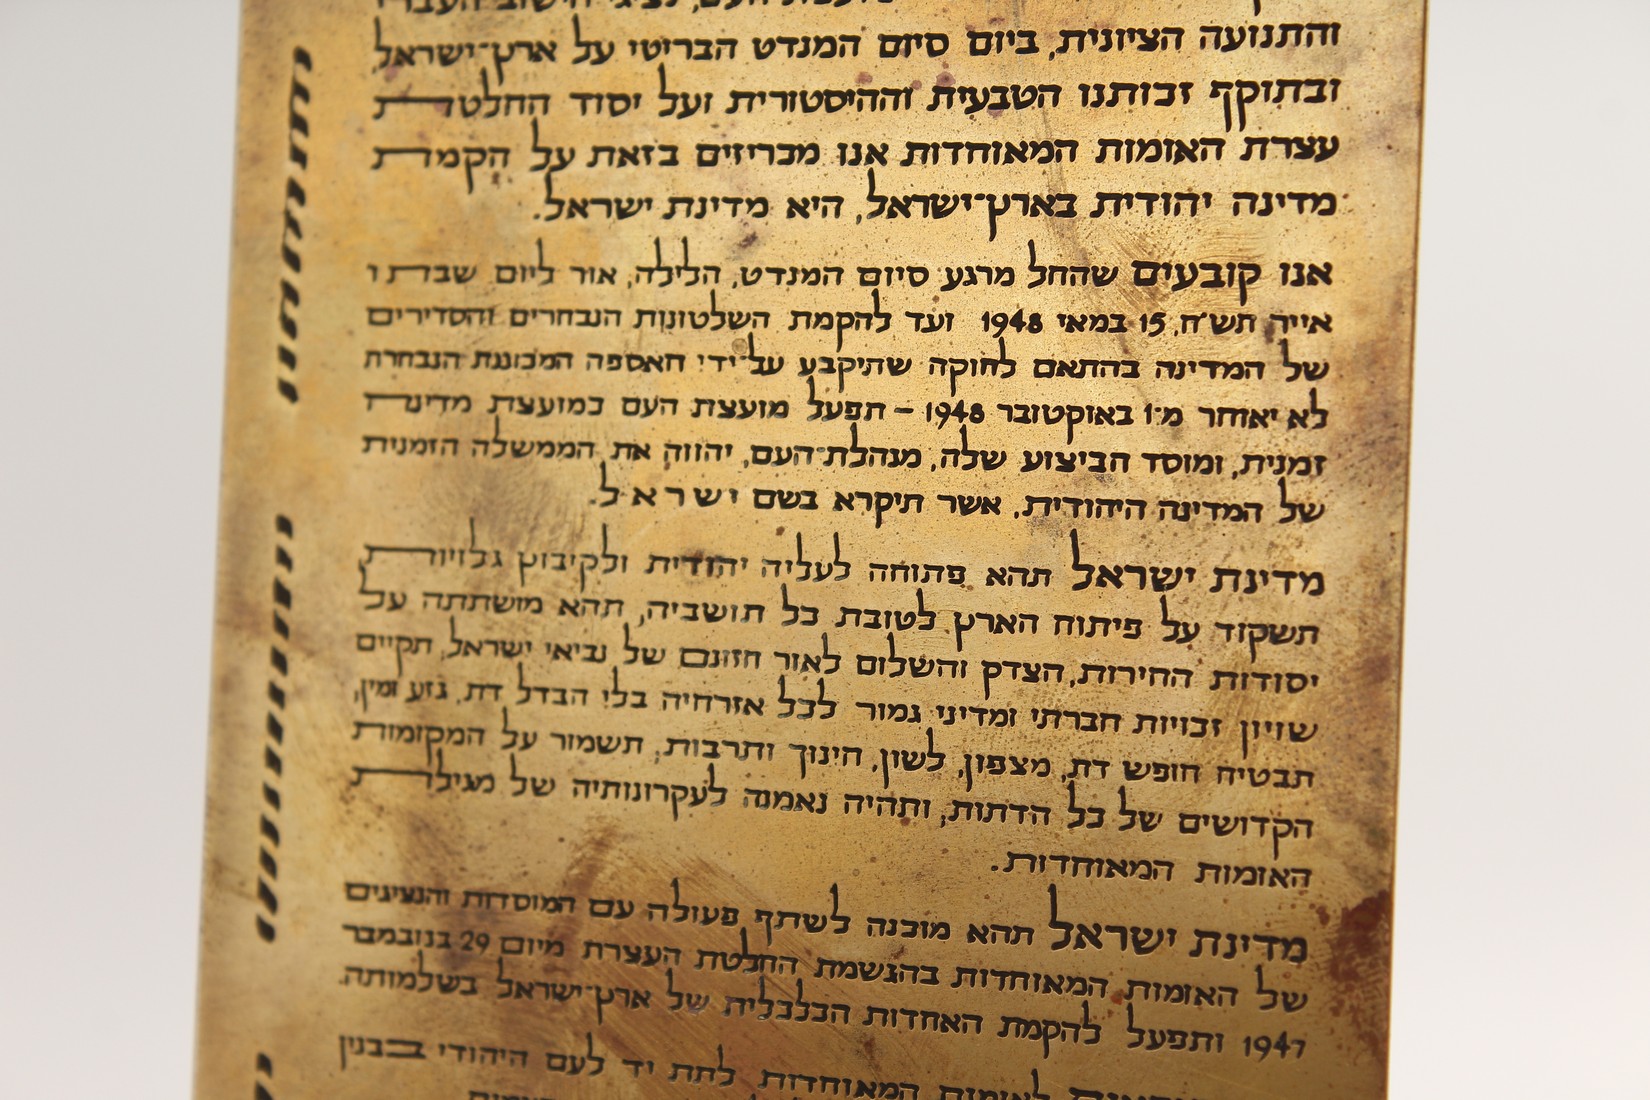 מועצת העם, נציגי הישוב העברי
והתנועה הציונית, ביום סיום המנדט הבריטי על ארץ־ישראל,
ובתוקף זכותנו הטבעית וההיסטורית ועל יסוד החלטת
עצרת האומות המאוחדות אנו מכריזים בזאת על הקמת
מדינה יהודית בארץ־ישראל, היא מדינת ישראל.
אנו קובעים שהחל מרגע סיום המנדט, הלילה, אור ליום שבת ו
אייר תש״ח, 15 במאי 1948 ועד להקמת השלטונות הנבחרים והסדירים
של המדינה בהתאם לחוקה שתיקבע על־ידי האספה המכוננת הנבחרת
לא יאוחר מ־1 באוקטובר 1948 – תפעל מועצת העם כמועצת מדינת
זמנית, ומוסד הביצוע שלה, מנהלת־העם, יהווה את הממשלה הזמנית
של המדינה היהודית, אשר תיקרא בשם ישראל.
מדינת ישראל תהא פתוחה לעליה יהודית ולקיבוץ גלויות
תשקוד על פיתוח הארץ לטובת כל תושביה, תהא מושתתה על
יסודות החירות, הצדק והשלום לאור חזונם של נביאי ישראל, תקיים
שויון זכויות חברתי ומדיני גמור לכל אזרחיה בלי הבדל דת, גזע ומין,
תבטיח חופש דת, מצפון, לשון, חינוך ותרבות, תשמור על המקומות
הקדושים של כל הדתות, ותהיה נאמנה לעקרונותיה של מגילת
האומות המאוחדות.
מדינת ישראל תהא מוכנה לשתף פעולה עם המוסדות והנציגים
של האומות המאוחדות בהגשמת החלטת העצרת מיום 29 בנובמבר
1947 ותפעל להקמת האחדות הכלכלית של ארץ־ישראל בשלמותה.
לאומות המאוחדות לתת יד לעם היהודי בבנין